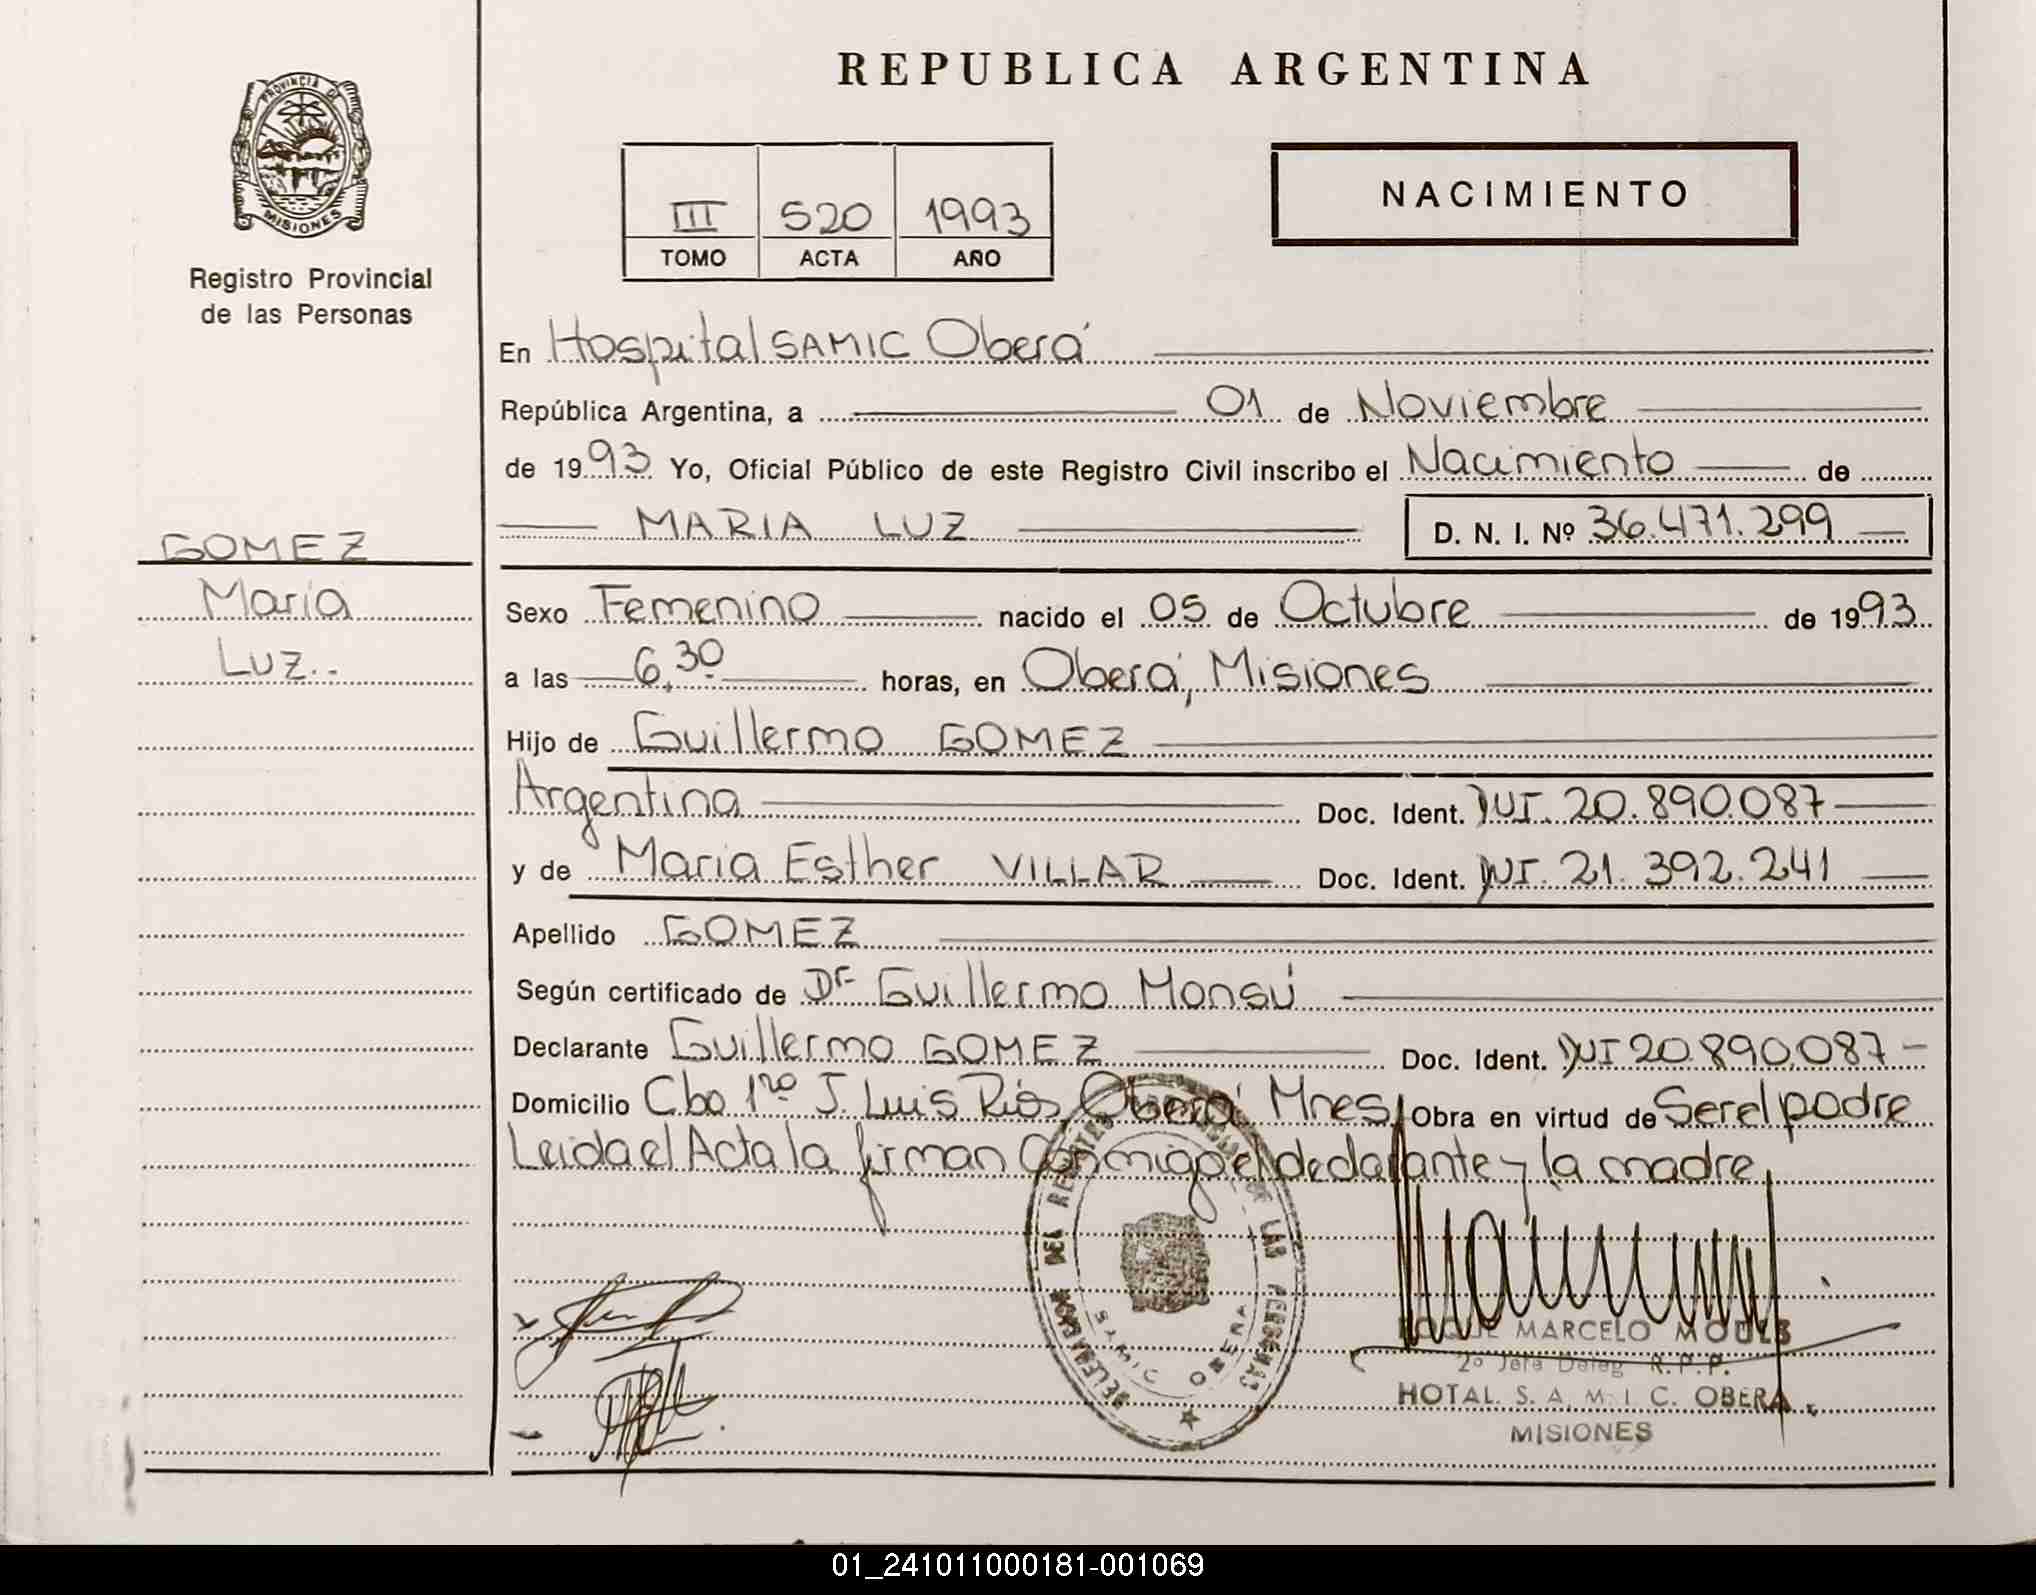 REPUBLICA ARGENTINA
PROVINCIA DE
MISIONES
Registro Provincial
de las Personas
III 520 1993
TOMO ACTA AÑO
NACIMIENTO
En Hospital SAMIC Oberá
República Argentina, a 01 de Noviembre
de 1993 Yo, Oficial Público de este Registro Civil inscribo el Nacimiento de
MARIA LUZ D. N. I. Nº 36.471.299
GOMEZ
María
Luz..
Sexo Femenino nacido el 05 de Octubre de 1993
a las 6,30 horas, en Oberá, Misiones
Hijo de Guillermo GOMEZ
Argentina Doc. Ident. DNI. 20.890.087
y de Maria Esther VILLAR Doc. Ident. DNI. 21.392.241
Apellido GOMEZ
Según certificado de Dr Guillermo Monsú
Declarante Guillermo GOMEZ Doc. Ident. DNI 20.890.087
Domicilio Cbo 1ro J. Luis Ríos, Oberá Mnes, Obra en virtud de Ser el padre
Leida el Acta la firman Conmigo el declarante y la madre
DELEGACION DEL REGISTRO DE LAS PERSONAS
SAMIC OBERA
ROQUE MARCELO
2º Jefe Deleg R.P.P.
HOTAL. S. A. M. I. C. OBERA
MISIONES
01_241011000181-001069